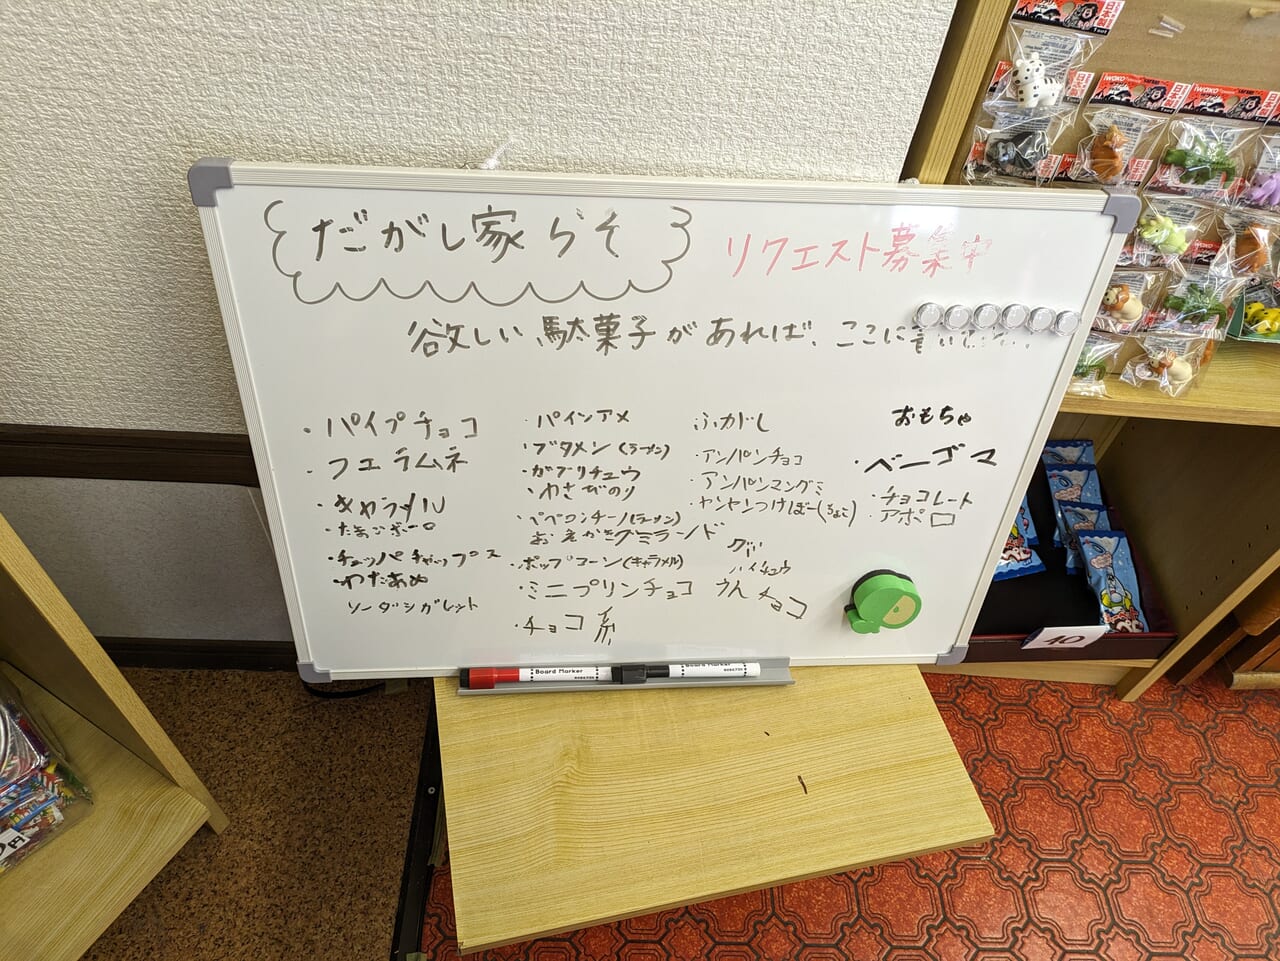 だがし家らそ
リクエスト募集中
欲しい駄菓子があれば、ここに
・パイプチョコ
・フエラムネ
・キャラメル
・たまごボーロ
・チュッパチャップス
・わたあめ
ソーダシガレット
・パインアメ
・ブタメン(ラーメン)
・ガブリチュウ
・わさびのり
・ペペロンチーノ(ラーメン)
おえかきグミランド
・ポップコーン(キャラメル)
・ミニプリンチョコ
・チョコ系
ふがし
・アンパンチョコ
・アンパンマングミ
ヤンヤンつけぼー(ちょこ)
グミ
ハイチュウ
うんチョコ
おもちゃ
・ベーゴマ
・チョコレート
・アポロ
Board Marker
Board Marker
iwako
iwako
日本製
10
円